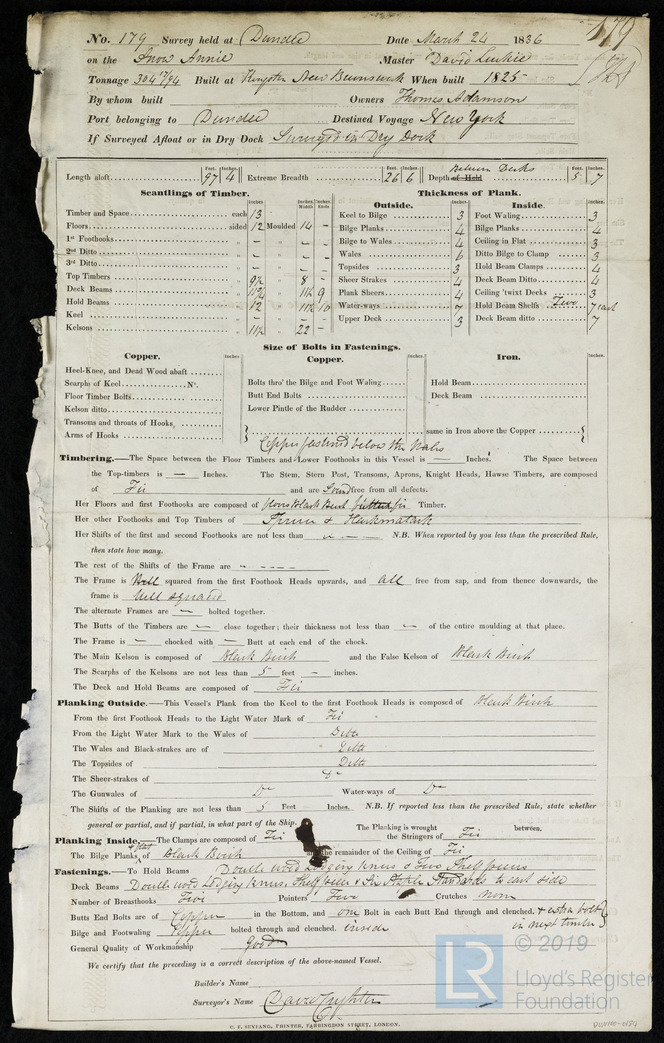 No. 179 Survey held at Dundee Date March 24 1836
179
on the Snow Annie Master David Luckie
Tonnage 304 17/94 Built at Kingston New Brunswick When built 1825
By whom built Owners Thomas Adamson
Port belonging to Dundee Destined Voyage New York
If Surveyed Afloat or in Dry Dock Surveyed in Dry Dock
Feet. Inches. Feet. Inches. Between Decks Feet. Inches.
Length aloft 97 4 Extreme Breadth 26 6 Depth of Hold 5 7
Scantlings of Timber. Thickness of Plank.
Inches. Inches Middle Inches Ends Outside. Inches. Inside. Inches.
Timber and Space each 13 Keel to Bilge 3 Foot Waling 3
Floors sided 12 Moulded 14 – Bilge Planks 4 Bilge Planks 4
1st Foothooks „ – „ – Bilge to Wales 4 Ceiling in Flat 3
2nd Ditto „ – „ – Wales 6 Ditto Bilge to Clamp 3
3rd Ditto „ – „ – Topsides 3 Hold Beam Clamps 4
Top Timbers „ 9½ „ 8 – Sheer Strakes 4 Deck Beam Ditto 4
Deck Beams „ 11¾ „ 11½ 9 Plank Sheers 4 Ceiling 'twixt Decks 3
Hold Beams „ 12 „ 11½ 10 Water-ways 7 Hold Beam Shelfs Two 7 each
Keel „ – „ – – Upper Deck 3 Deck Beam ditto 7
Kelsons „ 11½ „ 22 –
Size of Bolts in Fastenings.
Copper. Inches. Copper. Inches. Iron. Inches.
Heel-Knee, and Dead Wood abaft
Scarphs of Keel No. Bolts thro' the Bilge and Foot Waling Hold Beam
Floor Timber Bolts Butt End Bolts Deck Beam
Kelson ditto Lower Pintle of the Rudder
Transoms and throats of Hooks
Arms of Hooks same in Iron above the Copper
Copper fastened below the Wales
Timbering.—The Space between the Floor Timbers and Lower Foothooks in this Vessel is — Inches. The Space between
the Top-timbers is — Inches. The Stem, Stern Post, Transoms, Aprons, Knight Heads, Hawse Timbers, are composed
of Fir and are Sound free from all defects.
Her Floors and first Foothooks are composed of Floors Black Birch Timber.
Her other Foothooks and Top Timbers of Spruce & Hackmatack
Her Shifts of the first and second Foothooks are not less than N.B. When reported by you less than the prescribed Rule,
then state how many.
The rest of the Shifts of the Frame are
The Frame is Well squared from the first Foothook Heads upwards, and all free from sap, and from thence downwards, the
frame is Well squared
The alternate Frames are — bolted together.
The Butts of the Timbers are — close together; their thickness not less than — of the entire moulding at that place.
The Frame is — chocked with — Butt at each end of the chock.
The Main Kelson is composed of Black Birch and the False Kelson of Black Birch
The Scarphs of the Kelsons are not less than 5 feet – inches.
The Deck and Hold Beams are composed of Fir
Planking Outside.—This Vessel's Plank from the Keel to the first Foothook Heads is composed of Black Birch
From the first Foothook Heads to the Light Water Mark of Fir
From the Light Water Mark to the Wales of Ditto
The Wales and Black-strakes are of Ditto
The Topsides of Ditto
The Sheer-strakes of Do
The Gunwales of Do Water-ways of Do
The Shifts of the Planking are not less than 5 Feet — Inches. N.B. If reported less than the prescribed Rule, state whether
general or partial, and if partial, in what part of the Ship. The Planking is wrought between.
Planking Inside.—The Clamps are composed of Fir the Stringers of Fir
The Bilge Planks & flat of Black Birch the remainder of the Ceiling of Fir
Fastenings.—To Hold Beams Double wood Lodging Knees & Two Shelf pieces
Deck Beams Double wood Lodging Knees, Shelf piece & Six Staple Standards to each side
Number of Breasthooks Five Pointers Two Crutches None
Butts End Bolts are of Copper in the Bottom, and one Bolt in each Butt End through and clenched. & extra bolt
Bilge and Footwaling Copper bolted through and clenched. inside in next timber
General Quality of Workmanship good
We certify that the preceding is a correct description of the above-named Vessel.
Builder's Name
Surveyor's Name David Crighton
C. F. SEYFANG, PRINTER, FARRINGDON STREET, LONDON.
© 2019
LR
Lloyd's Register
Foundation